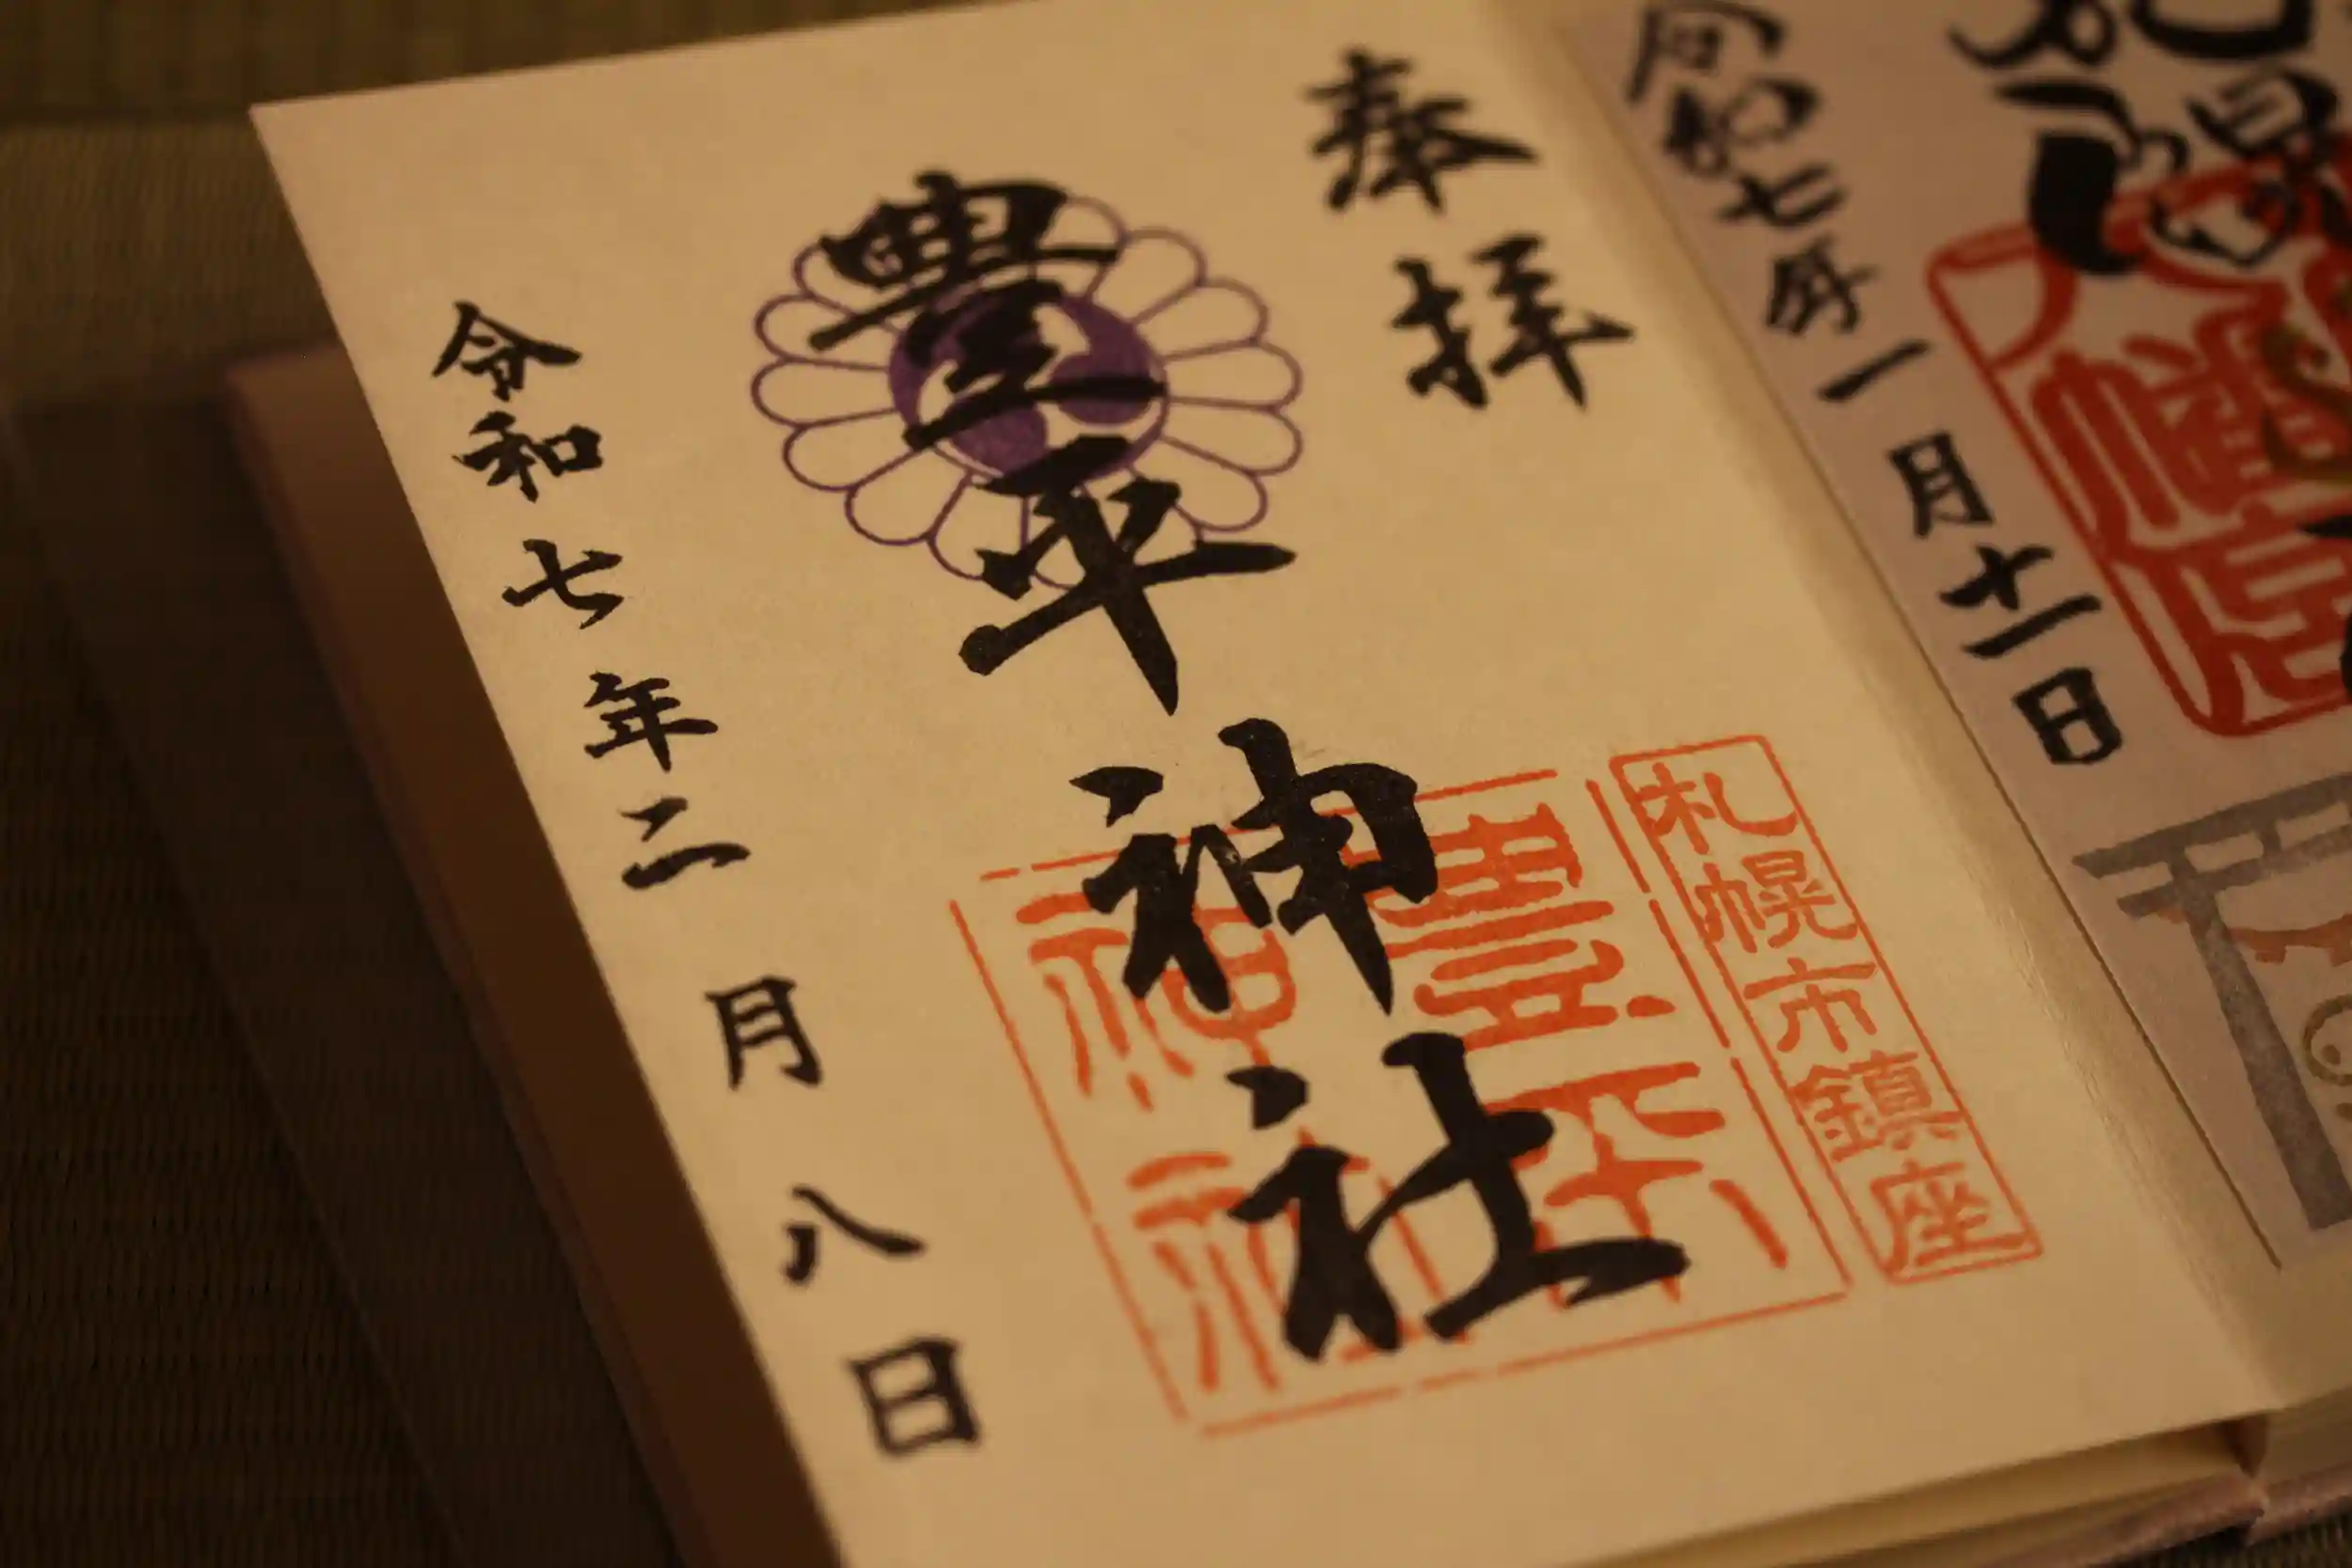 令和七年一月十一日
奉拝
豊平神社
札幌市鎮座
豊平
神社
令和七年二月八日